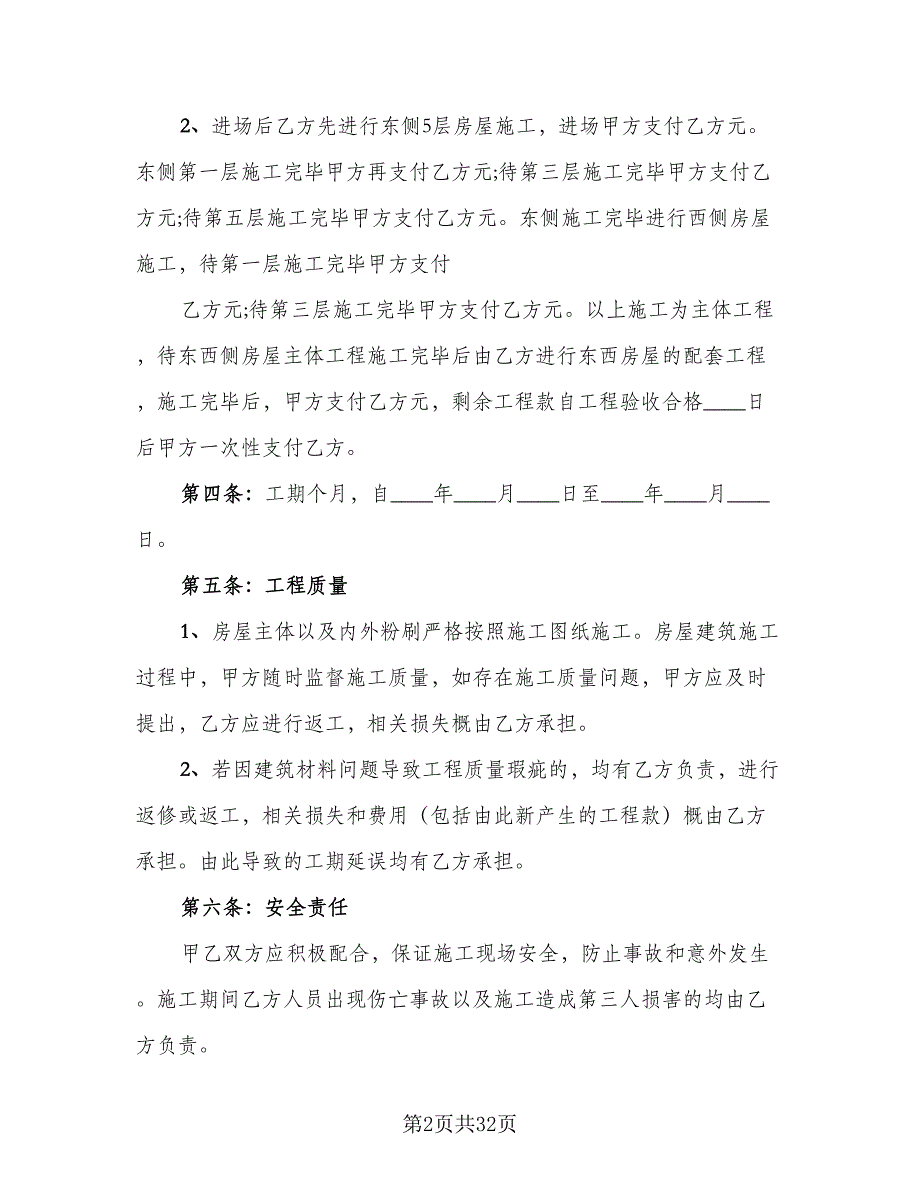 2、进场后乙方先进行东侧5层房屋施工，进场甲方支付乙方元。
东侧第一层施工完毕甲方再支付乙方元;待第三层施工完毕甲方支付乙
方元;待第五层施工完毕甲方支付乙方元。东侧施工完毕进行西侧房屋
施工，待第一层施工完毕甲方支付
乙方元;待第三层施工完毕甲方支付乙方元。以上施工为主体工程
，待东西侧房屋主体工程施工完毕后由乙方进行东西房屋的配套工程
，施工完毕后，甲方支付乙方元，剩余工程款自工程验收合格____日
后甲方一次性支付乙方。
第四条：工期个月，自____年____月____日至____年____月____
日。
第五条：工程质量
1、房屋主体以及内外粉刷严格按照施工图纸施工。房屋建筑施工
过程中，甲方随时监督施工质量，如存在施工质量问题，甲方应及时
提出，乙方应进行返工，相关损失概由乙方承担。
2、若因建筑材料问题导致工程质量瑕疵的，均有乙方负责，进行
返修或返工，相关损失和费用（包括由此新产生的工程款）概由乙方
承担。由此导致的工期延误均有乙方承担。
第六条：安全责任
甲乙双方应积极配合，保证施工现场安全，防止事故和意外发生
。施工期间乙方人员出现伤亡事故以及施工造成第三人损害的均由乙
方负责。
第2页共32页